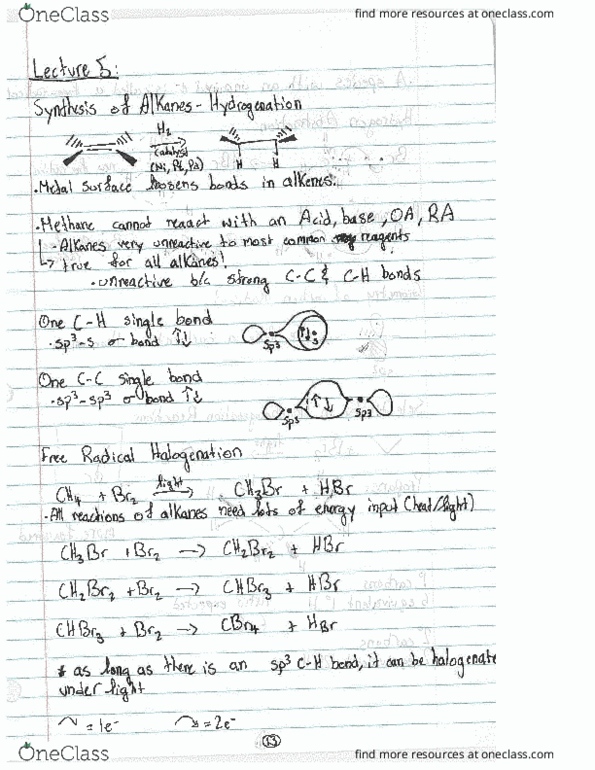 OneClass
find more resources at oneclass.com
Lecture 5:
Synthesis of Alkanes - Hydrogenation
H2
catalyst
(Ni, Pt, Pd)
H H
. Metal surface loosens bonds in alkenes.
. Methane cannot reaact with an Acid, base, OA, RA
- Alkanes very unreactive to most common reagents
↳ true for all alkanes!
. unreactive b/c strong C-C & C-H bonds
One C-H single bond
. sp³-s σ bond ↑↓
sp3 ↑↓ s
One C-C single bond
. sp³-sp³ σ bond ↑↓
sp3 ↑↓ sp3
Free Radical Halogenation
light
CH4 + Br2 → CH3Br + HBr
. All reactions of alkanes need lots of energy input (heat/light)
CH3Br + Br2 → CH2Br2 + HBr
CH2Br2 + Br2 → CHBr3 + HBr
CHBr3 + Br2 → CBr4 + HBr
* as long as there is an sp³ C-H bond, it can be halogenate
under light
= 1e⁻ = 2e⁻
13
OneClass
find more resources at oneclass.com